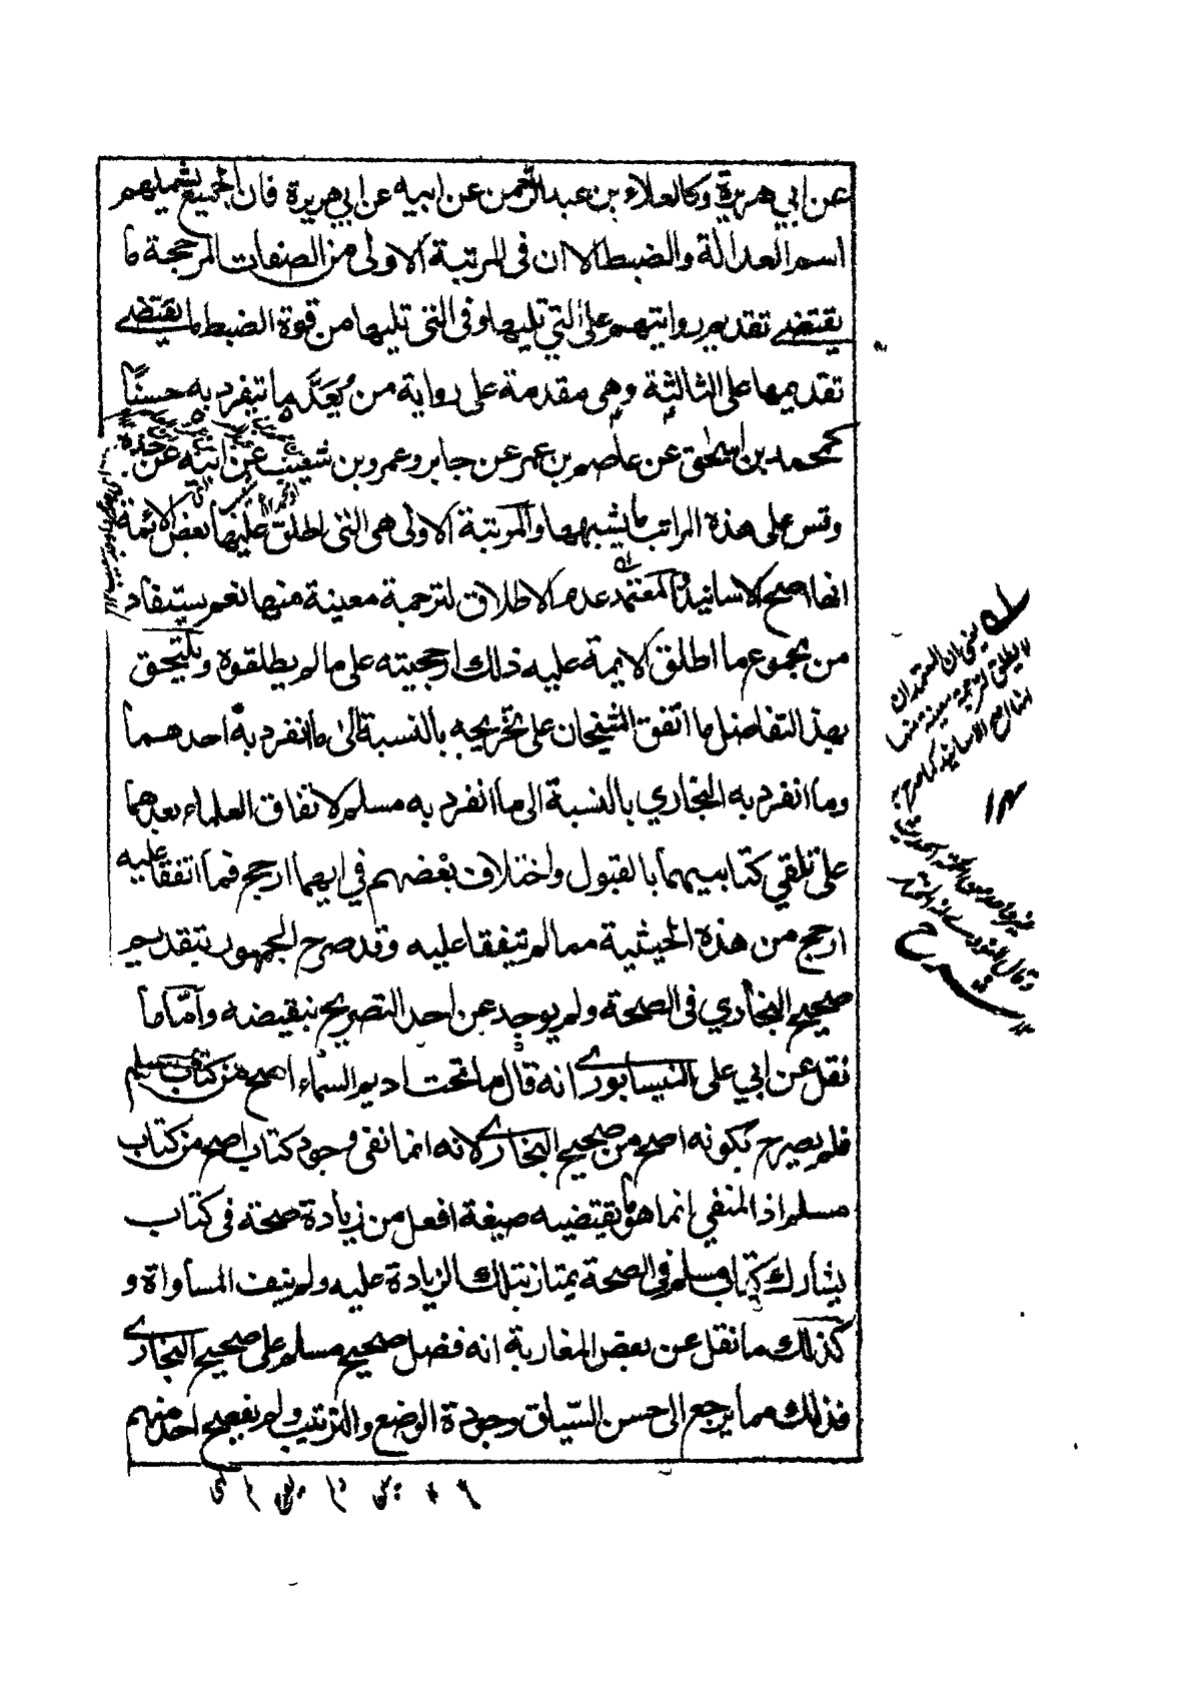 عن ابي هريرة وكالعلاء بن عبد الرحمن عن ابيه عن ابي هريرة فان الجميع يشملهم
اسم العدالة والضبط الا ان في المرتبة الاولى من الصفات المرجحة ما
يقتضي تقديم روايتهم على التي تليها وفي التي تليها من قوة الضبط ما يقتضي
تقديمها على الثالثة وهي مقدمة على رواية من يُعَدَّ ما تيفرد به حسنًا
كمحمد بن اسحق عن عاصم بن عمر عن جابر وعمرو بن شعيب عن ابيه عن جده
وقس على هذه المراتب ما يشبهها والمرتبة الاولى هي التي اطلق عليها بعض الائمة
انها اصح الاسانيد والمعتمد عدم الاطلاق لترجمة معينة منها نعم يستفاد
من مجموع ما اطلق الايمة عليه ذلك ارجحيته على ما لم يطلقوه ويلتحق
بهذ التفاضل ما اتفق الشيخان على تخريجه بالنسبة الى ما انفرد به احدهما
وما انفرد به البخاري بالنسبة الى ما انفرد به مسلم لاتفاق العلماء بعدهما
على تلقي كتابيهما بالقبول واختلاف بعضهم في ايهما ارجح فما اتفقا عليه
ارجح من هذه الحيثية مما لم يتفقا عليه وقد صرح الجمهور بتقديم
صحيح البخاري في الصحة ولم يوجد عن احد التصريح بنقيضه وأمّا ما
نقل عن ابي على النيسابوري انه قال ما تحت اديم السماء اصح من كتاب مسلم
فلم يصرح بكونه اصح من صحيح البخاري لانه انما نفى وجود كتاب اصح من كتاب
مسلم اذ المنفي انما هو ما يقتضيه صيغة افعل من زيادة صحة في كتاب
يشارك كتاب مسلم في الصحة يمتاز بتلك الزيادة عليه ولم ينف المساواة و
كذلك ما نقل عن بعض المغاربة انه فضل صحيح مسلم على صحيح البخاري
فذلك مما يرجع الى حسن السّياق وجودة الوضع والترتيب ولم يفصح احد منهم